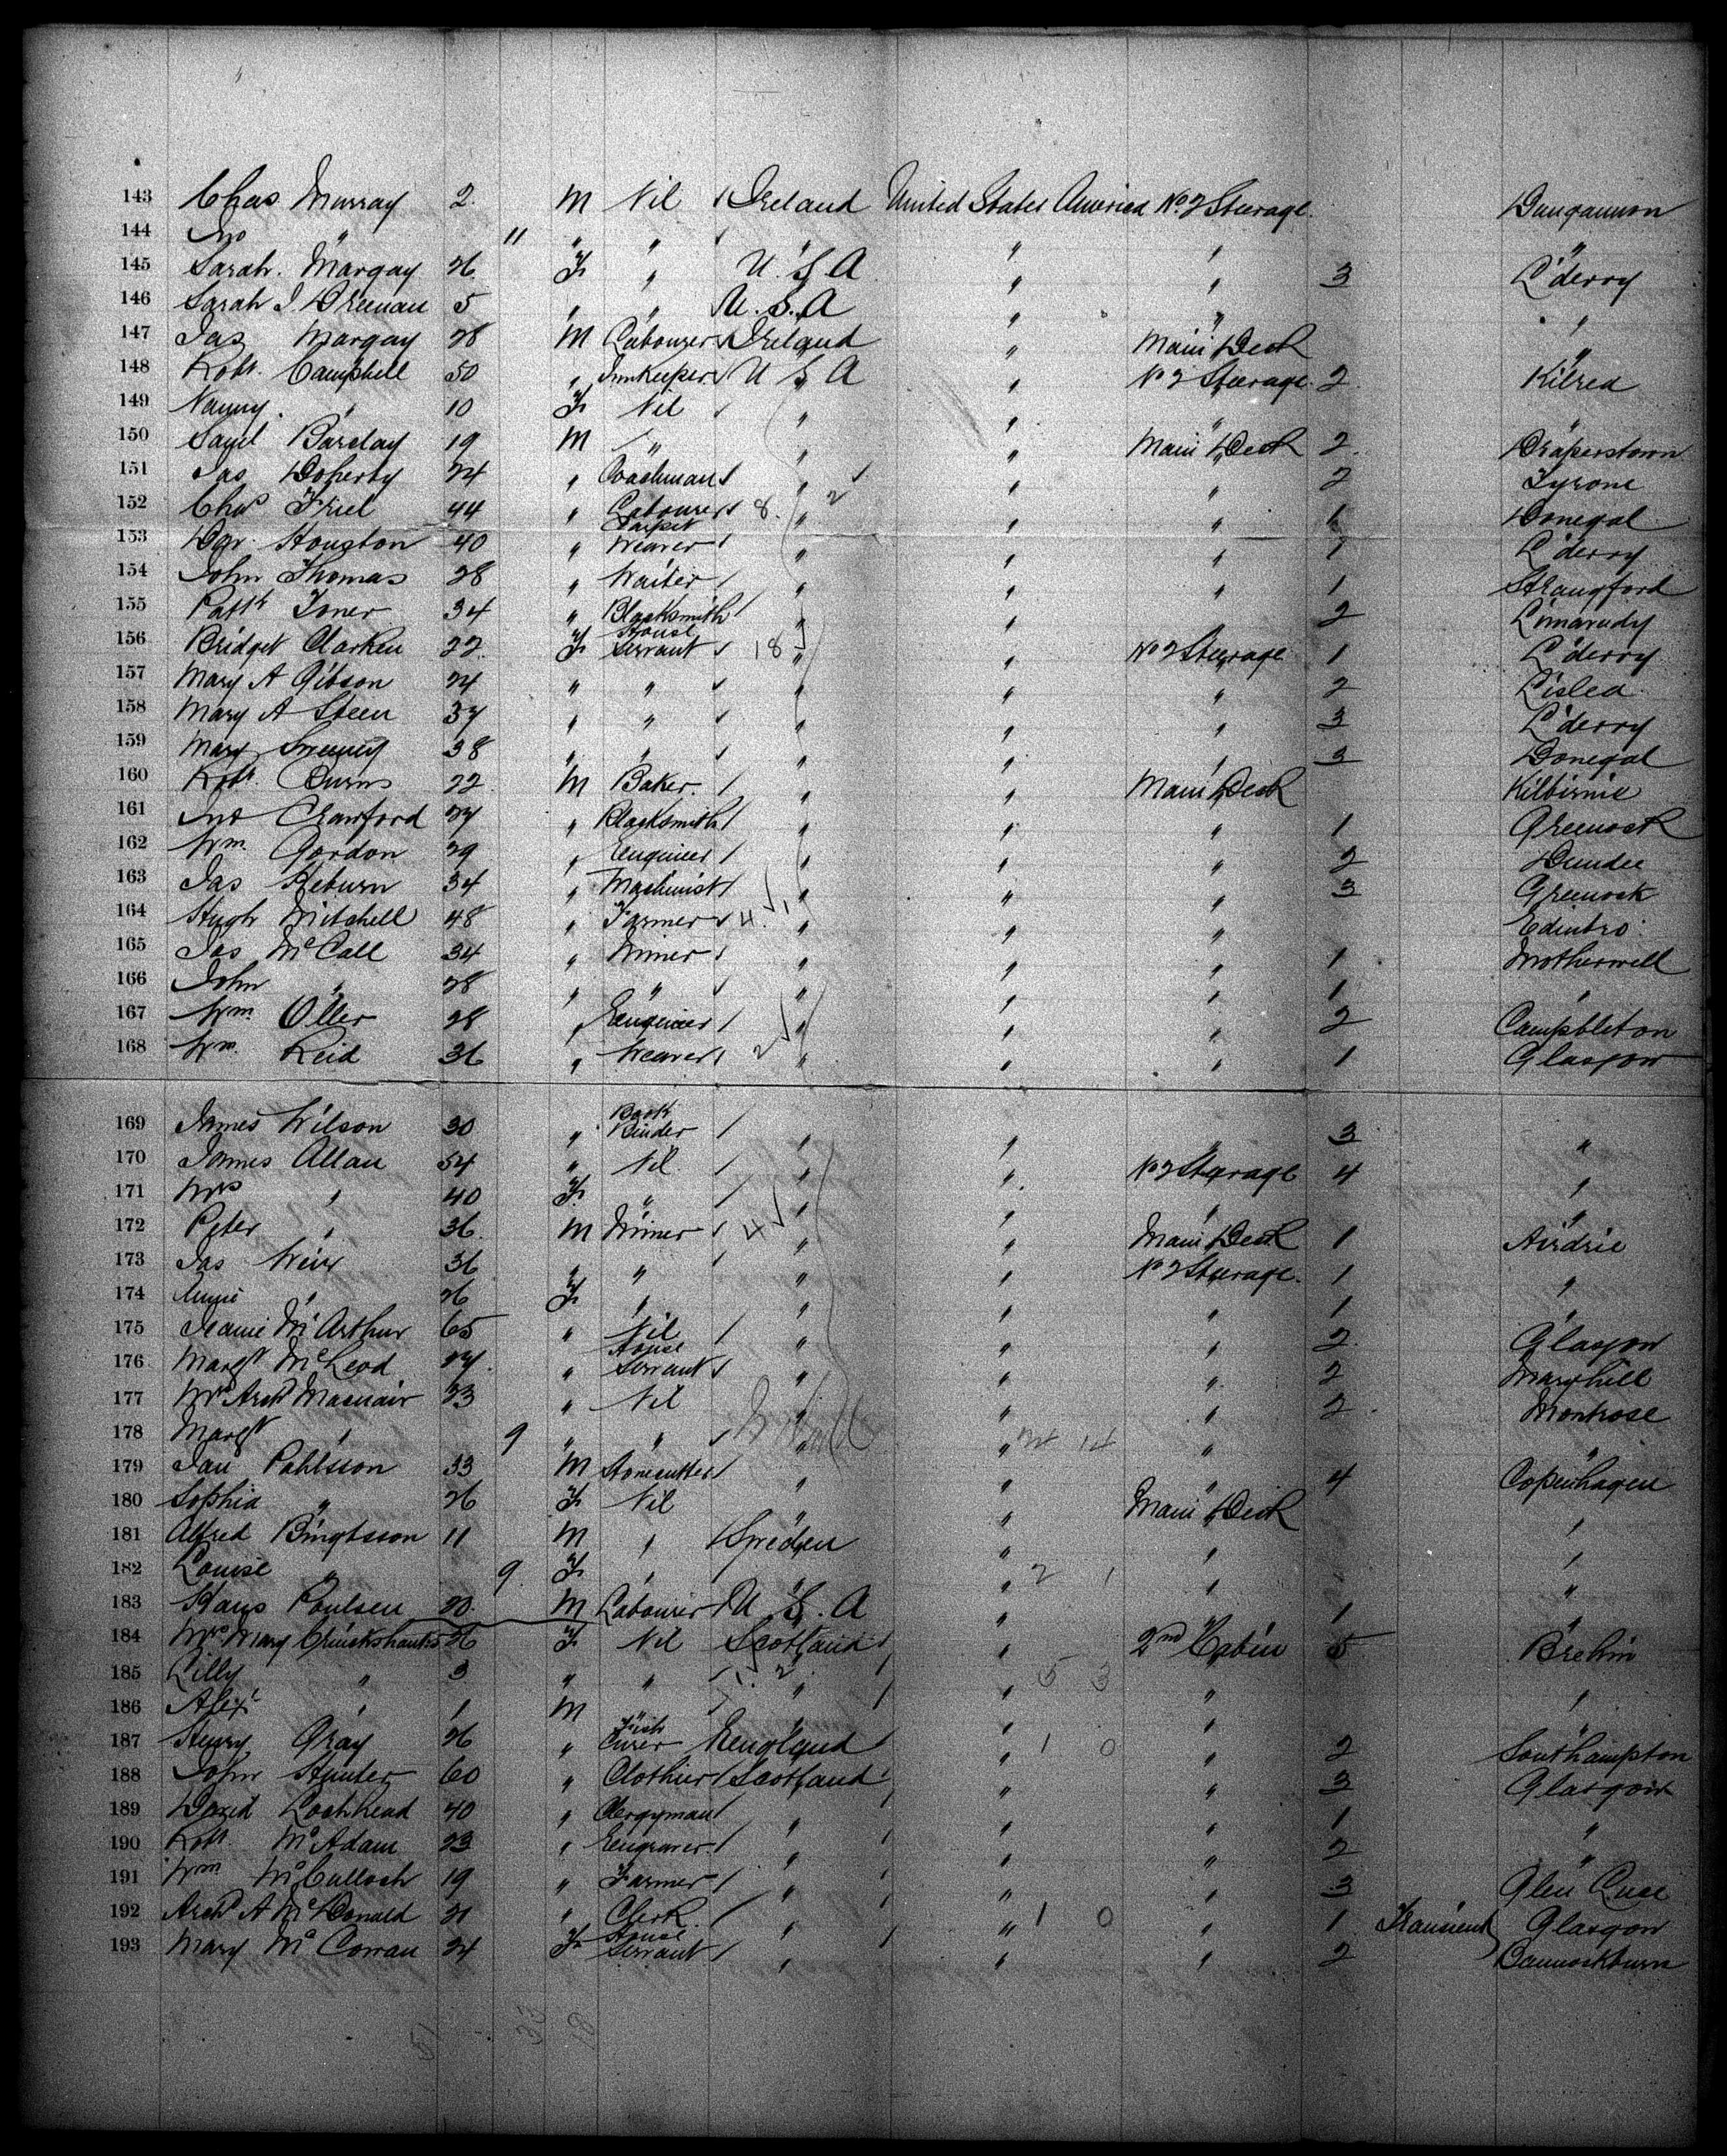 143 Chas Murray 2 M Nil Ireland United States America No 2 Steerage Dungannon
144 Jno " 11 " " " " " "
145 Sarah Margay 26 F " U. S. A " " 3 L'derry
146 Sarah J 5 " " U. S. A " " "
147 Jas Margay 28 M Labourer Ireland " Main Deck "
148 Robt. Campbell 50 " Innkeeper U S A " No 2 Steerage 2 Kilrea
149 Nanny " 10 F Nil " " " "
150 Saml Barclay 19 M " " " Main Deck 2 Draperstown
151 Jas Doherty 24 " Coachman " " " 2 Tyrone
152 Chas Friel 44 " Labourer 8 " 2 " " 1 Donegal
153 Houston 40 " Carpet Weaver " " " 1 L'derry
154 John Thomas 28 " Waiter " " " 1 Strangford
155 Pattk Toner 34 " Blacksmith " " " 2 L'imavady
156 Bridget Clarken 22 F House Servant 18 " " No 2 Steerage 1 L'derry
157 Mary A Gibson 24 " " " " " 2 Lislea
158 Mary A Steen 37 " " " " " 3 L'derry
159 Mary Sweeney 38 " " " " " 3 Donegal
160 Robt. Burns 22 M Baker " " Main Deck Kilbirnie
161 Jno Crawford 27 " Blacksmith " " " 1 Greenock
162 Wm. Gordon 29 " Engineer " " " 2 Dundee
163 Jas Heburn 34 " Machinist " " " 3 Greenock
164 Hugh Mitchell 48 " Farmer 4 " " " Edinbro
165 Jas McCall 34 " Miner " " " 1 Motherwell
166 John " 28 " " " " " 1 "
167 Wm. Oller 28 " Engineer " " " 2 Campbleton
168 Wm. Reid 36 " Weaver 2 " " " 1 Glasgow
169 James Wilson 30 " Book Binder " " " 3 "
170 James Allan 54 " Nil " " No 2 Steerage 4 "
171 Mrs " 40 F " " " " "
172 Peter " 36 M Miner 4 " " Main Deck 1 Airdrie
173 Jas Weir 36 " " " " No 2 Steerage 1 "
174 Annie " 26 F " " " " 1 "
175 Jeanie McArthur 65 " Nil " " " 2 Glasgow
176 Margt McLeod 27 " House Servant " " " 2 Maryhill
177 Mrs Archd Macnair 23 " Nil " " " 2 Montrose
178 Margt " 9 " " " " 14 " "
179 Jan Pahlsson 33 M Stonecutter " " " 4 Copenhagen
180 Sophia " 26 F Nil " " Main Deck "
181 Alfred Bingtsson 11 M " Sweden " " "
182 Louise " 9 F " " " 2 1 " "
183 Hans Poulsen 20 M Labourer U. S. A " " 1 "
184 Mrs Mary Cruickshanks 26 F Nil Scotland " 2nd Cabin 5 Brehin
185 Lilly " 3 " " 1. 2 " " 5 3 " "
186 Alexr " 1 M " " " " "
187 Henry Gray 26 " Fish Curer England " 1 0 " 2 Southampton
188 John Hunter 60 " Clothier Scotland " " 3 Glasgow
189 David Lochhead 40 " Clergyman " " " 1 "
190 Robt. McAdam 23 " Engraver " " " 2 "
191 Wm McCulloch 19 " Farmer " " " 3 Glen Luce
192 Archd A McDonald 21 " Clerk " " 1 0 " 1 Transient Glasgow
193 Mary McCorran 24 F House Servant " " " 2 Bannockburn